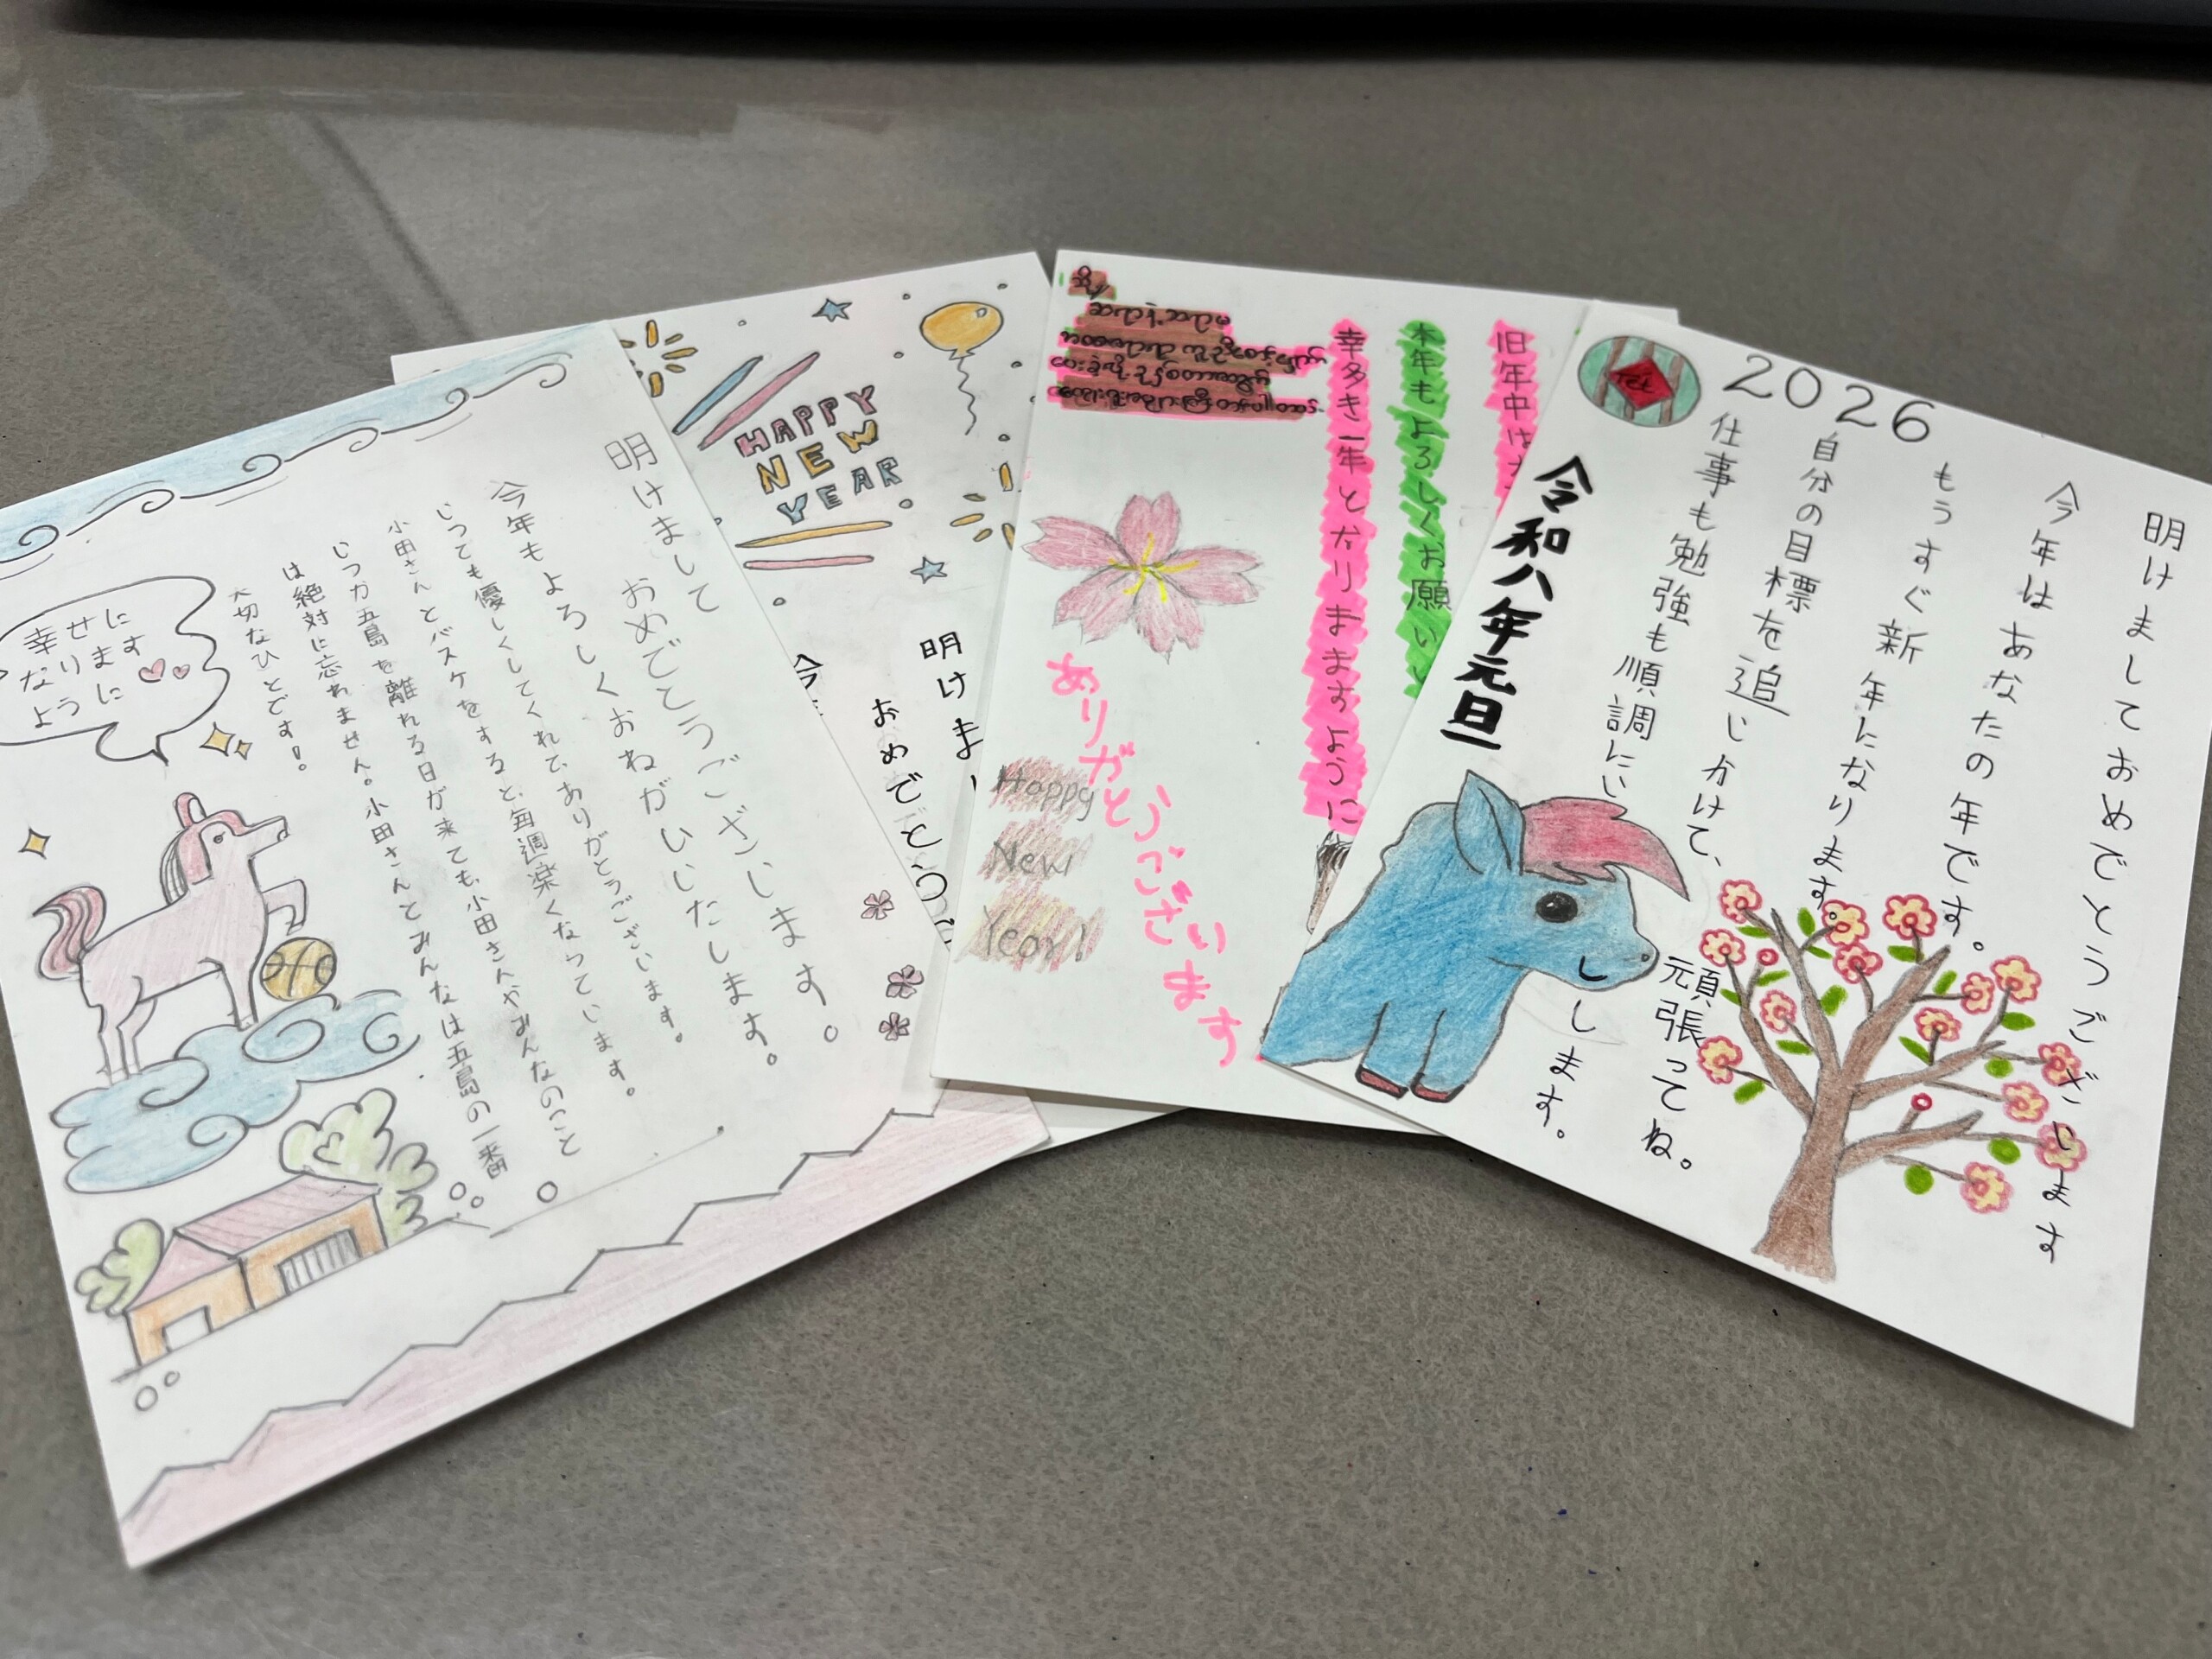 明けまして
おめでとうございます。
今年もよろしくおねがいいたします。
いつても優しくしてくれて、ありがとうございます。
小田さんとバスケをすると、毎週楽くなっています。
いつか五島を離れる日が来ても、小田さんやみんなのこと
は絶対に忘れません。小田さんとみんなは五島の一番
大切なひとです！
幸せに
なります
ように
HAPPY
NEW
YEAR
明けまし
おめでとうご
今
旧年中は
本年もよろしくお願いし
幸多き一年となりますように
ありがとうございます
Happy
New
Year!
2026
明けましておめでとうございます
今年はあなたの年です。
もうすぐ新年になります。
自分の目標を追いかけて、頑張ってね。
仕事も勉強も順調にい
します。
令和八年元旦